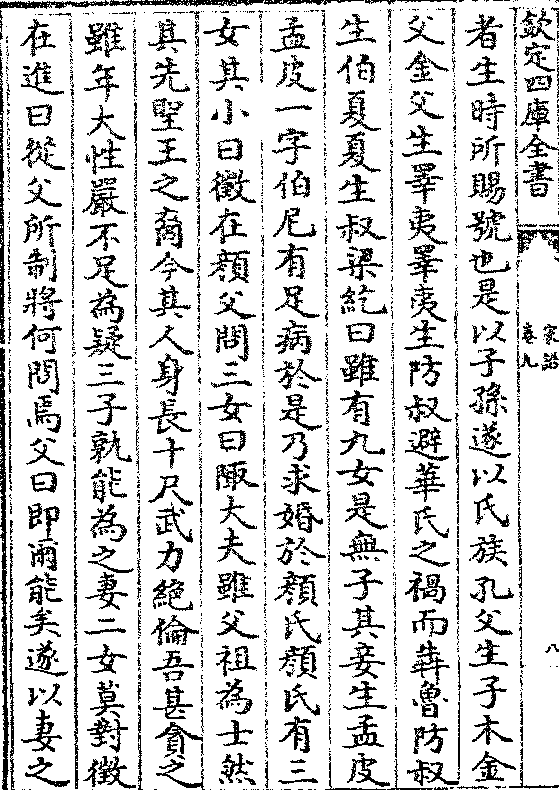 欽定四庫全書
家語
卷九
八
者生時所賜號也是以子孫遂以氏族孔父生子木金
父金父生睪夷睪夷生防叔避華氏之禍而犇魯防叔
生伯夏夏生叔梁紇曰雖有九女是無子其妾生孟皮
孟皮一字伯尼有足病於是乃求婚於顏氏顏氏有三
女其小曰徵在顏父問三女曰陬大夫雖父祖為士然
其先聖王之裔今其人身長十尺武力絶倫吾甚貪之
雖年大性嚴不足為疑三子孰能為之妻二女莫對徵
在進曰從父所制將何問焉父曰即爾能矣遂以妻之